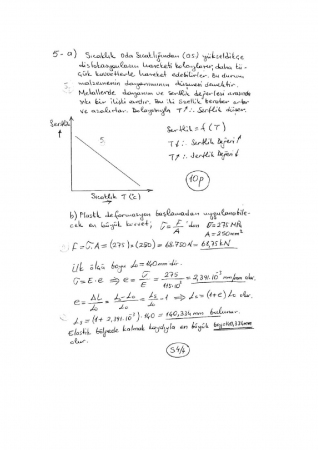 5-a) Sıcaklık Oda Sıcaklığından (OS) yükseldikçe
dislokasyonların hareketi kolaylaşır, daha kü-
çük kuvvetlerle hareket edebilirler. Bu durum
malzemenin dayanımının düşmesi demektir.
Metallerde dayanım ve sertlik değerleri arasında
sıkı bir ilişki vardır. Bu iki özellik beraber artar
ve azalırlar. Dolayısıyla T↑ ∴ Sertlik düşer.
Sertlik
5
Sıcaklık T(C)
Sertlik = f(T)
T↓ ∴ Sertlik Değeri ↑
T↑ ∴ Sertlik Değeri ↓
10p
b) Plastik deformasyon başlamadan uygulanabile-
cek en büyük kuvvet; σ = F/A 'dan σ = 275 MPa
A = 250mm²
F = σ.A = (275).(250) = 68.750N = 68,75kN
İlk ölçü boyu L₀ = 140mm dir.
σ = E.e ⟹ e = σ/E = 275/115.10³ = 2,391.10⁻³ mm/mm olur.
e = ΔL/L₀ = (L₁-L₀)/L₀ = L₁/L₀ - 1 ⟹ L₁ = (1+e) L₀ olur.
L₁ = (1 + 2,391.10⁻³).140 = 140,334mm bulunur.
Elastik bölgede kalmak koşuluyla en büyük boy=140,334mm
olur.
S4/4